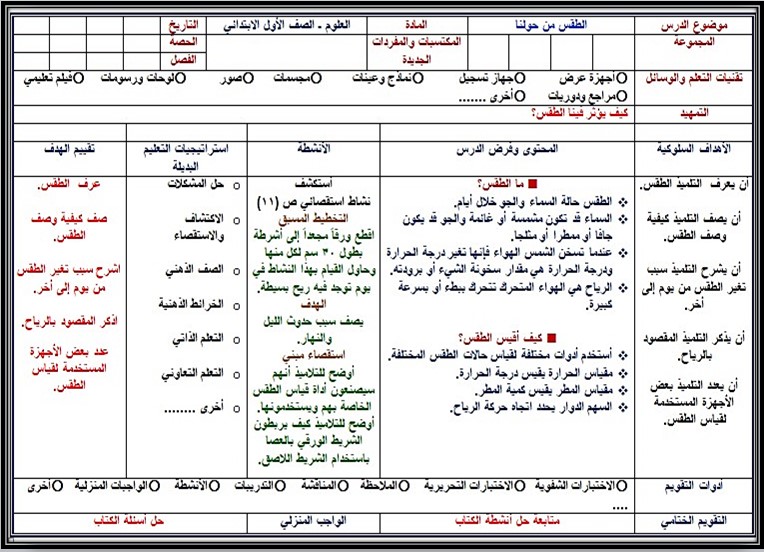 موضوع الدرس
الطقس من حولنا
المادة
العلوم ـ الصف الأول الابتدائي
التاريخ
المجموعة
المكتسبات والمفردات
الجديدة
الحصة
الفصل
تقنيات التعلم والوسائل
Oأجهزة عرض Oجهاز تسجيل Oنماذج وعينات Oمجسمات Oصور Oلوحات ورسومات Oفيلم تعليمي
Oمراجع ودوريات Oأخرى .......
التمهيد
كيف يؤثر فينا الطقس؟
الأهداف السلوكية
المحتوى وفرض الدرس
الأنشطة
استراتيجيات التعليم
البديلة
تقييم الهدف
أن يعرف التلميذ الطقس.
أن يصف التلميذ كيفية
وصف الطقس.
أن يشرح التلميذ سبب
تغير الطقس من يوم إلى
أخر.
أن يذكر التلميذ المقصود
بالرياح.
أن يعدد التلميذ بعض
الأجهزة المستخدمة
لقياس الطقس.
■ ما الطقس؟
❖ الطقس حالة السماء والجو خلال أيام.
❖ السماء قد تكون مشمسة أو غائمة والجو قد يكون
جافا أو ممطرا أو مثلجا.
❖ عندما تسخن الشمس الهواء فإنها تغير درجة الحرارة
ودرجة الحرارة هي مقدار سخونة الشيء أو برودته.
❖ الرياح هي الهواء المتحرك تتحرك ببطء أو بسرعة
كبيرة.
■ كيف أقيس الطقس؟
❖ أستخدم أدوات مختلفة لقياس حالات الطقس المختلفة.
❖ مقياس الحرارة يقيس درجة الحرارة.
❖ مقياس المطر يقيس كمية المطر.
❖ السهم الدوار يحدد اتجاه حركة الرياح.
أستكشف
نشاط استقصائي ص (١١)
التخطيط المسبق
اقطع ورقاً مجعداً إلى أشرطة
بطول ٣٠ سم لكل منها
وحاول القيام بهذا النشاط في
يوم توجد فيه ريح بسيطة.
الهدف
يصف سبب حدوث الليل
والنهار.
استقصاء مبني
أوضح للتلاميذ أنهم
سيصنعون أداة قياس الطقس
الخاصة بهم ويستخدمونها.
أوضح للتلاميذ كيف يربطون
الشريط الورقي بالعصا
باستخدام الشريط اللاصق.
o حل المشكلات
o الاكتشاف
والاستقصاء
o الصف الذهني
o الخرائط الذهنية
o التعلم الذاتي
o التعلم التعاوني
o أخرى ........
عرف الطقس.
صف كيفية وصف
الطقس.
اشرح سبب تغير الطقس
من يوم إلى أخر.
اذكر المقصود بالرياح.
عدد بعض الأجهزة
المستخدمة لقياس
الطقس.
أدوات التقويم
Oالاختبارات الشفوية Oالاختبارات التحريرية Oالملاحظة Oالمناقشة Oالتدريبات Oالأنشطة Oالواجبات المنزلية Oأخرى
....
التقويم الختامي
متابعة حل أنشطة الكتاب
الواجب المنزلي
حل أسئلة الكتاب